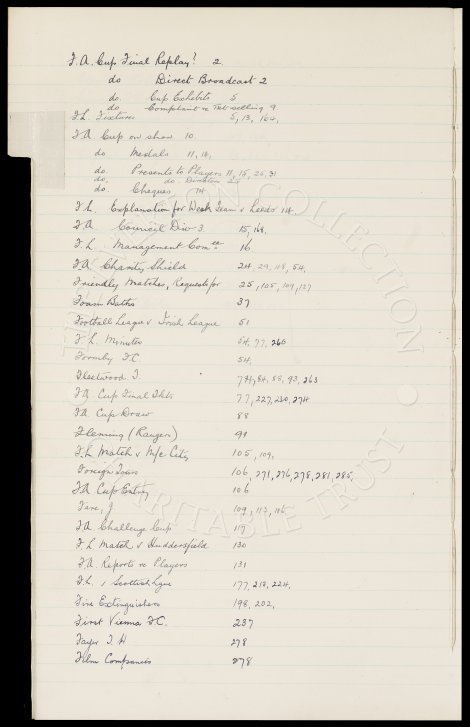 F.A. Cup Final Replay? 2
do Direct Broadcast 2
do. Cup Exhibits 5
do Complaint re Tkt selling 9
F.L. Fixtures 5, 13, 164,
F.A. Cup on show 10
do Medals 11, 14,
do. Presents to Players 11, 15, 26, 31
do. do Directors
do. Cheques 14
F.L. Explanation for Weak Team v Leeds 14
F.A. Council Div 3 15, 168,
F.L. Management Comee 16
F.A. Charity Shield 24, 29, 118, 54,
Friendly Matches, Requests for 25, 105, 109, 127
Foam Baths 37
Football League v Irish League 51
F.L. Minutes 54, 77, 260
Formby F.C. 54,
Fleetwood T. 74, 84, 88, 93, 263
F.A. Cup Final Tkts 77, 227, 230, 274
F.A. Cup Draw 88
Fleming (Rangers) 99
F.L. Match v M/c City 105, 109,
Foreign Tours 106, 271, 276, 278, 281, 285,
F.A. Cup Entry 106
Fare, J 109, 112, 116
F.A. Challenge Cup 117
F.L. Match v Huddersfield 130
F.A. Reports re Players 131
F.L. v Scottish Lgue 177, 212, 224,
Fire Extinguishers 198, 202,
First Vienna F.C. 237
Fayer T. H 278
Film Companies 278
COLLECTION
CHARITABLE TRUST